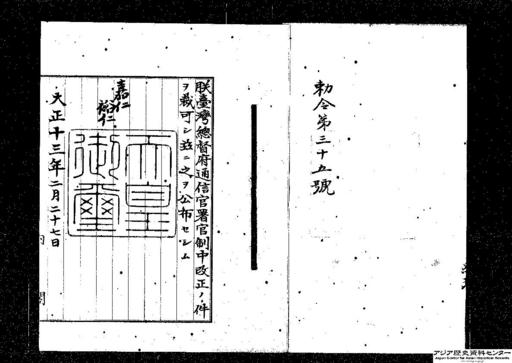 勅令第三十五號
朕臺灣總督府通信官署官制中改正ノ件
ヲ裁可シ玆ニ之ヲ公布セシム
嘉仁
裕仁
天皇
御璽
大正十三年二月二十七日
内閣
アジア歴史資料センター
Japan Center for Asian Historical Records